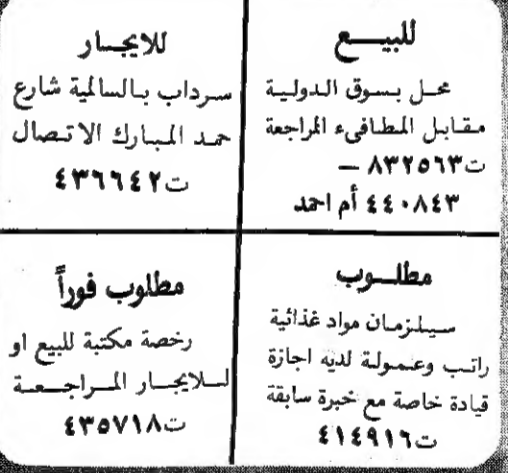 للبيـــع
محل بسوق الدولية
مقابل المطافىء المراجعة
ت٨٣٢٥٦٣ —
٤٤٠٨٤٣ أم احمد
للايجـار
سرداب بالسالمية شارع
حمد المبارك الاتصال
ت٤٣٦٦٤٢
مطلـــوب
سيلزمان مواد غذائية
راتب وعمولة لديه اجازة
قيادة خاصة مع خبرة سابقة
ت٤١٤٩١٦
مطلوب فوراً
رخصة مكتبة للبيع او
لـلايجـار المـراجـعـة
ت٤٣٥٧١٨